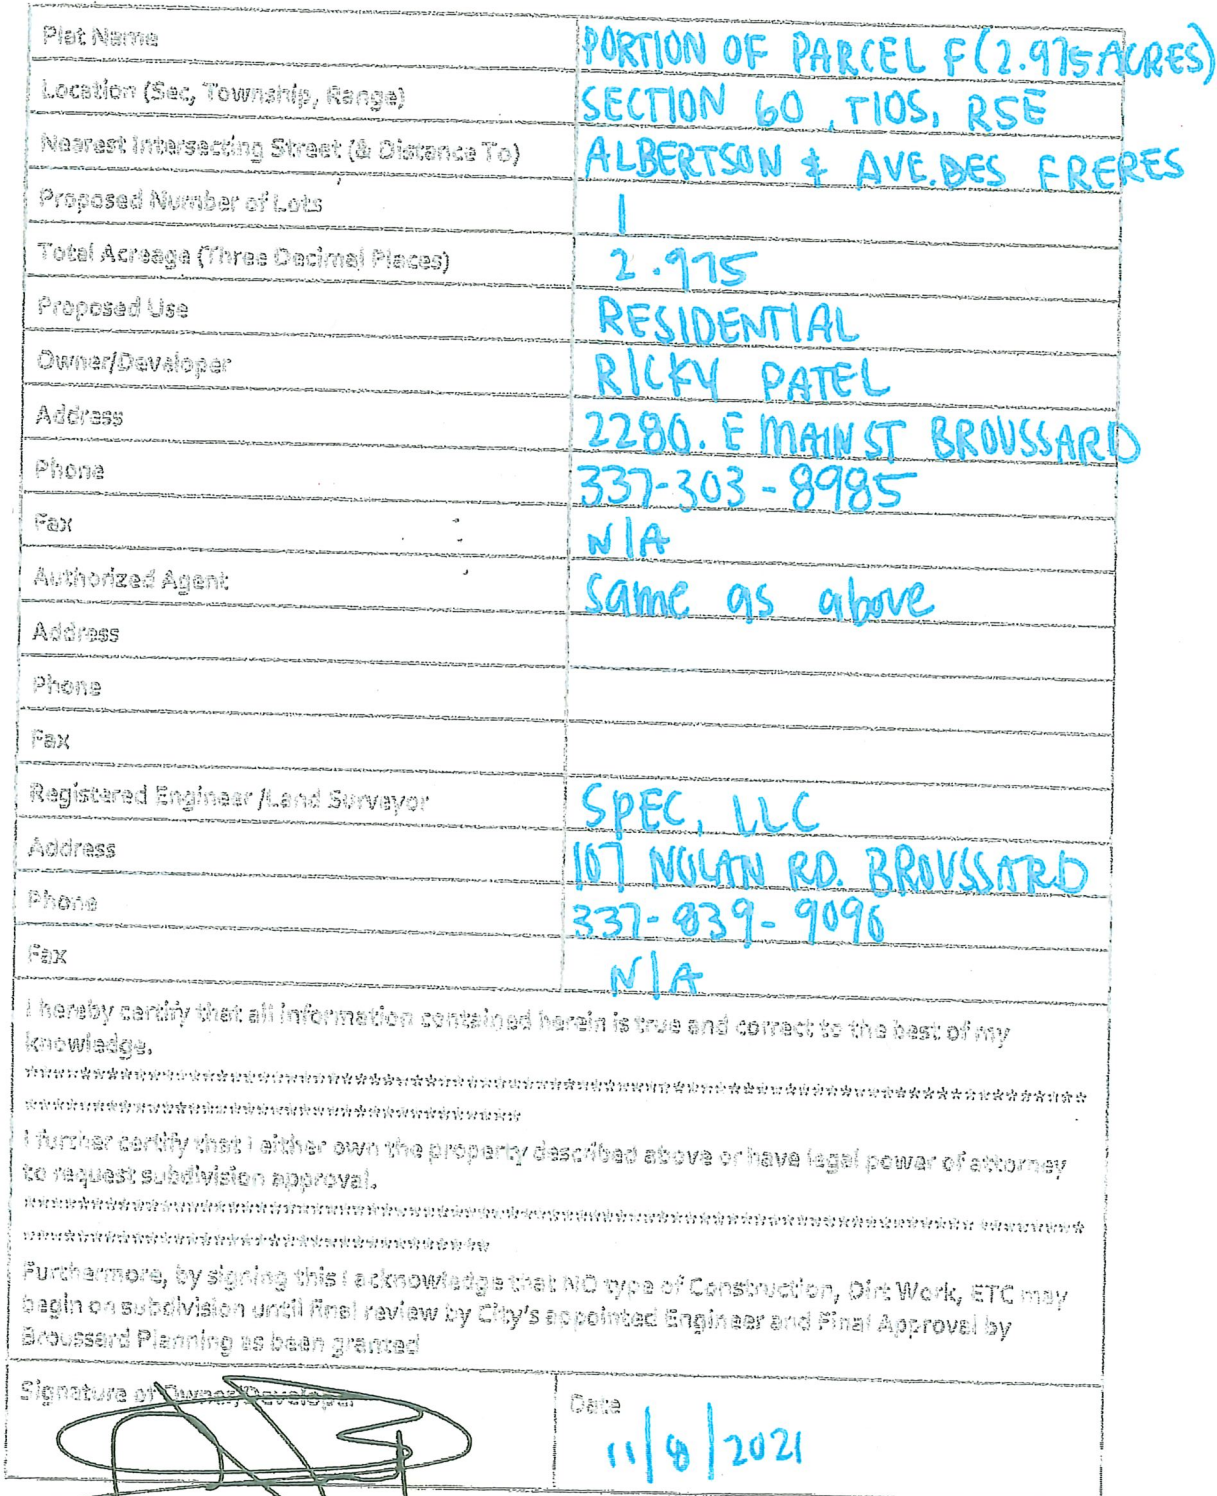 Plat Name PORTION OF PARCEL F (2.975 ACRES)
Location (Sec, Township, Range) SECTION 60, T10S, R5E
Nearest Intersecting Street (& Distance To) ALBERTSON & AVE. DES FRERES
Proposed Number of Lots 1
Total Acreage (Three Decimal Places) 2.975
Proposed Use RESIDENTIAL
Owner/Developer RICKY PATEL
Address 2280. E MAIN ST BROUSSARD
Phone 337-303-8985
Fax N/A
Authorized Agent same as above
Address
Phone
Fax
Registered Engineer /Land Surveyor SPEC, LLC
Address 107 NOLAN RD. BROUSSARD
Phone 337-839-9096
Fax N/A
I hereby certify that all information contained herein is true and correct to the best of my
knowledge.
I further certify that I either own the property described above or have legal power of attorney
to request subdivision approval.
Furthermore, by signing this I acknowledge that NO type of Construction, Dirt Work, ETC may
begin on subdivision until final review by City's appointed Engineer and Final Approval by
Broussard Planning as been granted
Signature of Owner/Developer Date
11/8/2021